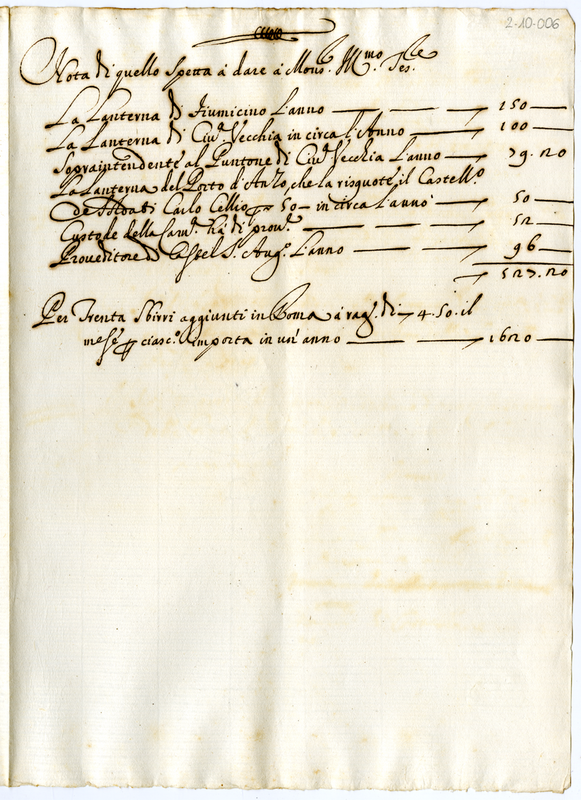 2-10-006
Nota di quello spetta à dare à Mons.r Ill.mo Tes.re
La Lanterna di Fiumicino l'anno — 150 —
La Lanterna di Ciu.ª Vecchia in circa l'Anno — 100 —
Sopraintendente al Puntone di Ciu.ª Vecchia l'anno — 79.20
La Lanterna del Porto d'Anzo, che la risquote il Castell.o
de Carlo Cellio p 50 — in circa l'anno — 50 —
Custode della Cam.ª hà di prou.e — 52 —
Proueditore di Castel S. Ang.o l'anno — 96 —
527.20
Per Trenta Sbirri aggiunti in Roma à rag.e di 4.50. il
mese p ciasc.o importa in un'anno — 1620 —